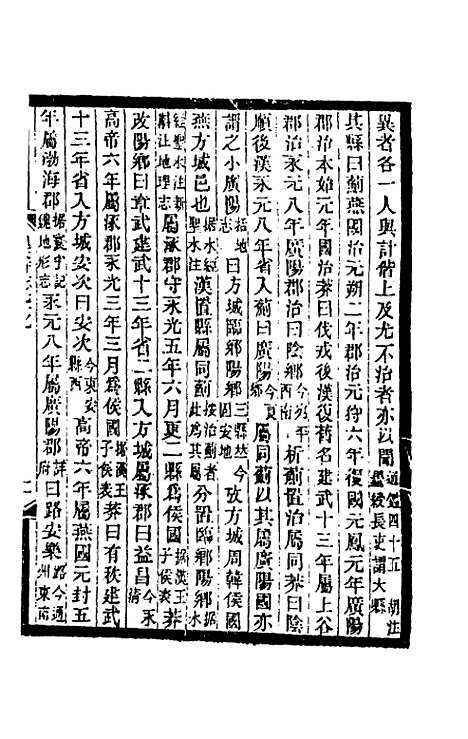 異者各一人與計偕上及尤不治者亦以聞通鑑四十五胡注墨綬長吏謂大縣
其縣曰薊燕國治元朔二年郡治元狩六年復國元鳳元年廣陽
郡治本始元年國治莽曰伐戎後漢復舊名建武十三年屬上谷
郡治永元八年廣陽郡治曰陰鄉今宛平西南析薊置治屬同莽曰陰
順後漢永元八年省入薊曰廣陽今良鄉屬同薊以其屬廣陽國亦
謂之小廣陽括地志曰方城臨鄉陽鄉三縣故今固安地攷方城周韓侯國
燕方城邑也據水經聖水注漢置縣屬同薊按治薊者此為其屬分置臨鄉陽鄉據水
經聖水注新斠注地理志屬涿郡守永光五年六月更二縣為侯國據漢王子侯表莽
改陽鄉曰章武建武十三年省二縣入方城屬涿郡曰益昌今永清
高帝六年屬涿郡永光三年三月為侯國據漢王子侯表莽曰有秩建武
十三年省入方城安次曰安次今東安縣西高帝六年屬燕國元封五
年屬渤海郡據寰宇記輿地形志永元八年屬廣陽郡詳府曰路安樂路今通州東南